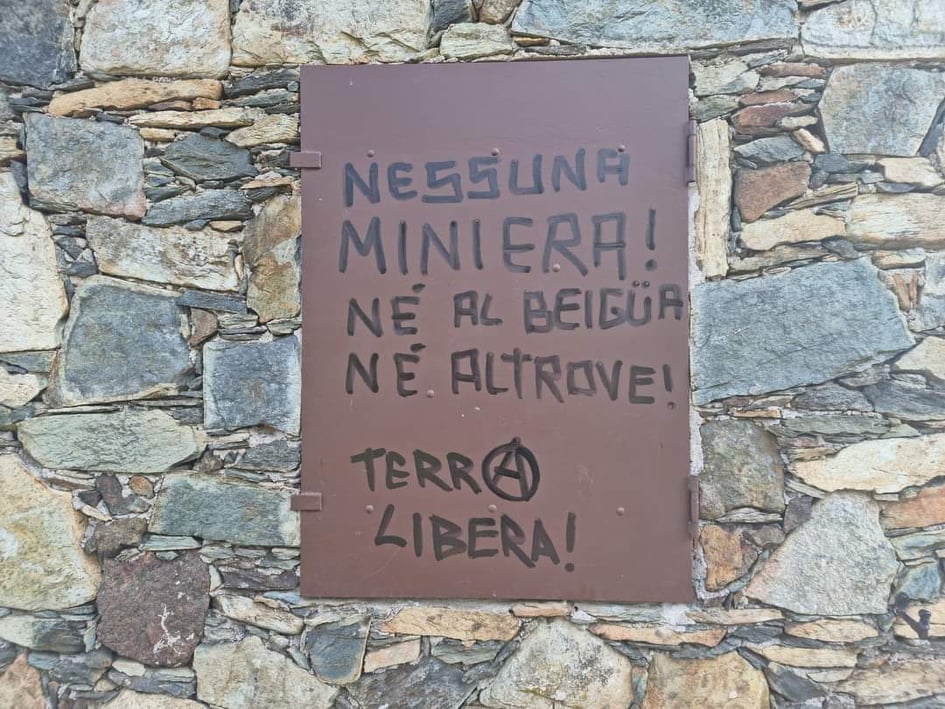 NESSUNA
MINIERA!
NÉ AL BEIGÜA
NÉ ALTROVE!
TERRA
LIBERA!